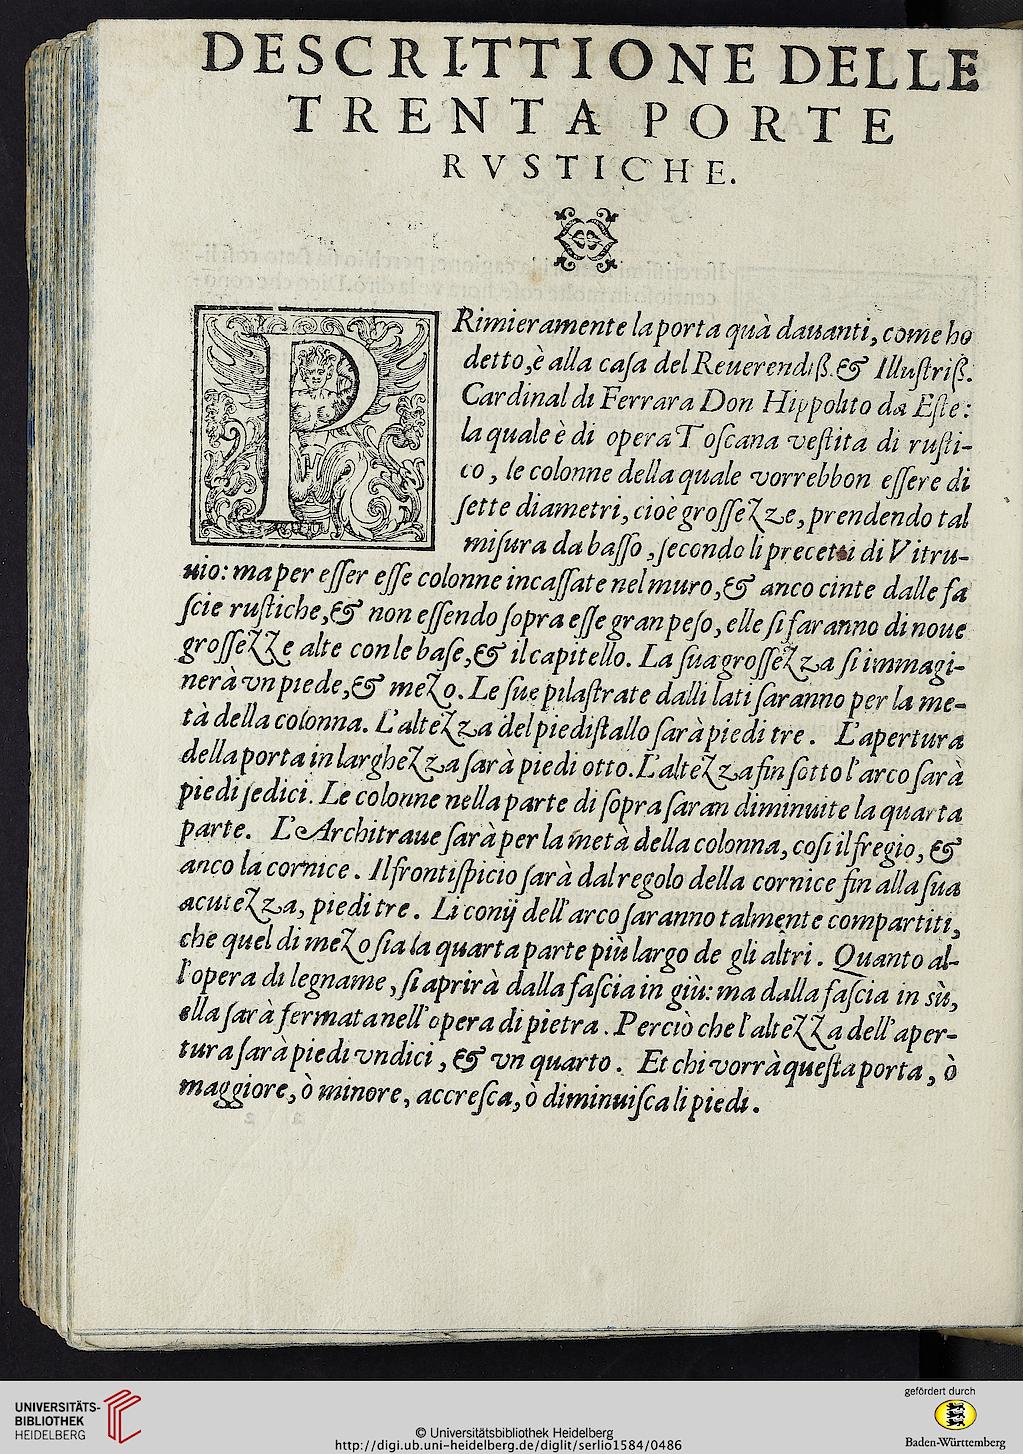 DESCRITTIONE DELLE
TRENTA PORTE
RVSTICHE.
PRimieramente la porta quà dauanti, come ho
detto, è alla caſa del Reuerendiß. & Illuſtriß.
Cardinal di Ferrara Don Hippolito da Eſte:
la quale è di opera Toſcana veſtita di ruſti-
co, le colonne della quale vorrebbon eſſere di
ſette diametri, cioe groſſezze, prendendo tal
miſura da baſſo, ſecondo li precetti di Vitru-
uio: ma per eſſer eſſe colonne incaſſate nel muro, & anco cinte dalle fa
ſcie ruſtiche, & non eſſendo ſopra eſſe gran peſo, elle ſi faranno di noue
groſſezze alte con le baſe, & il capitello. La ſua groſſezza ſi immagi-
nerà vn piede, & mezo. Le ſue pilaſtrate dalli lati ſaranno per la me-
tà della colonna. L'altezza del piediſtallo ſarà piedi tre. L'apertura
della porta in larghezza ſarà piedi otto. L'altezza fin ſotto l'arco ſarà
piedi ſedici. Le colonne nella parte di ſopra ſaran diminuite la quarta
parte. L'Architraue ſarà per la metà della colonna, coſi il fregio, &
anco la cornice. Il frontiſpicio ſarà dal regolo della cornice fin alla ſua
acutezza, piedi tre. Li conij dell'arco ſaranno talmente compartiti,
che quel di mezo ſia la quarta parte più largo de gli altri. Quanto al-
l'opera di legname, ſi aprirà dalla faſcia in giù: ma dalla faſcia in sù,
ella ſarà fermata nell'opera di pietra. Perciò che l'altezza dell'aper-
tura ſarà piedi vndici, & vn quarto. Et chi vorrà queſta porta, ò
maggiore, ò minore, accreſca, ò diminuiſca li piedi.
UNIVERSITÄTS-
BIBLIOTHEK
HEIDELBERG
© Universitätsbibliothek Heidelberg
http://digi.ub.uni-heidelberg.de/diglit/serlio1584/0486
gefördert durch
Baden-Württemberg